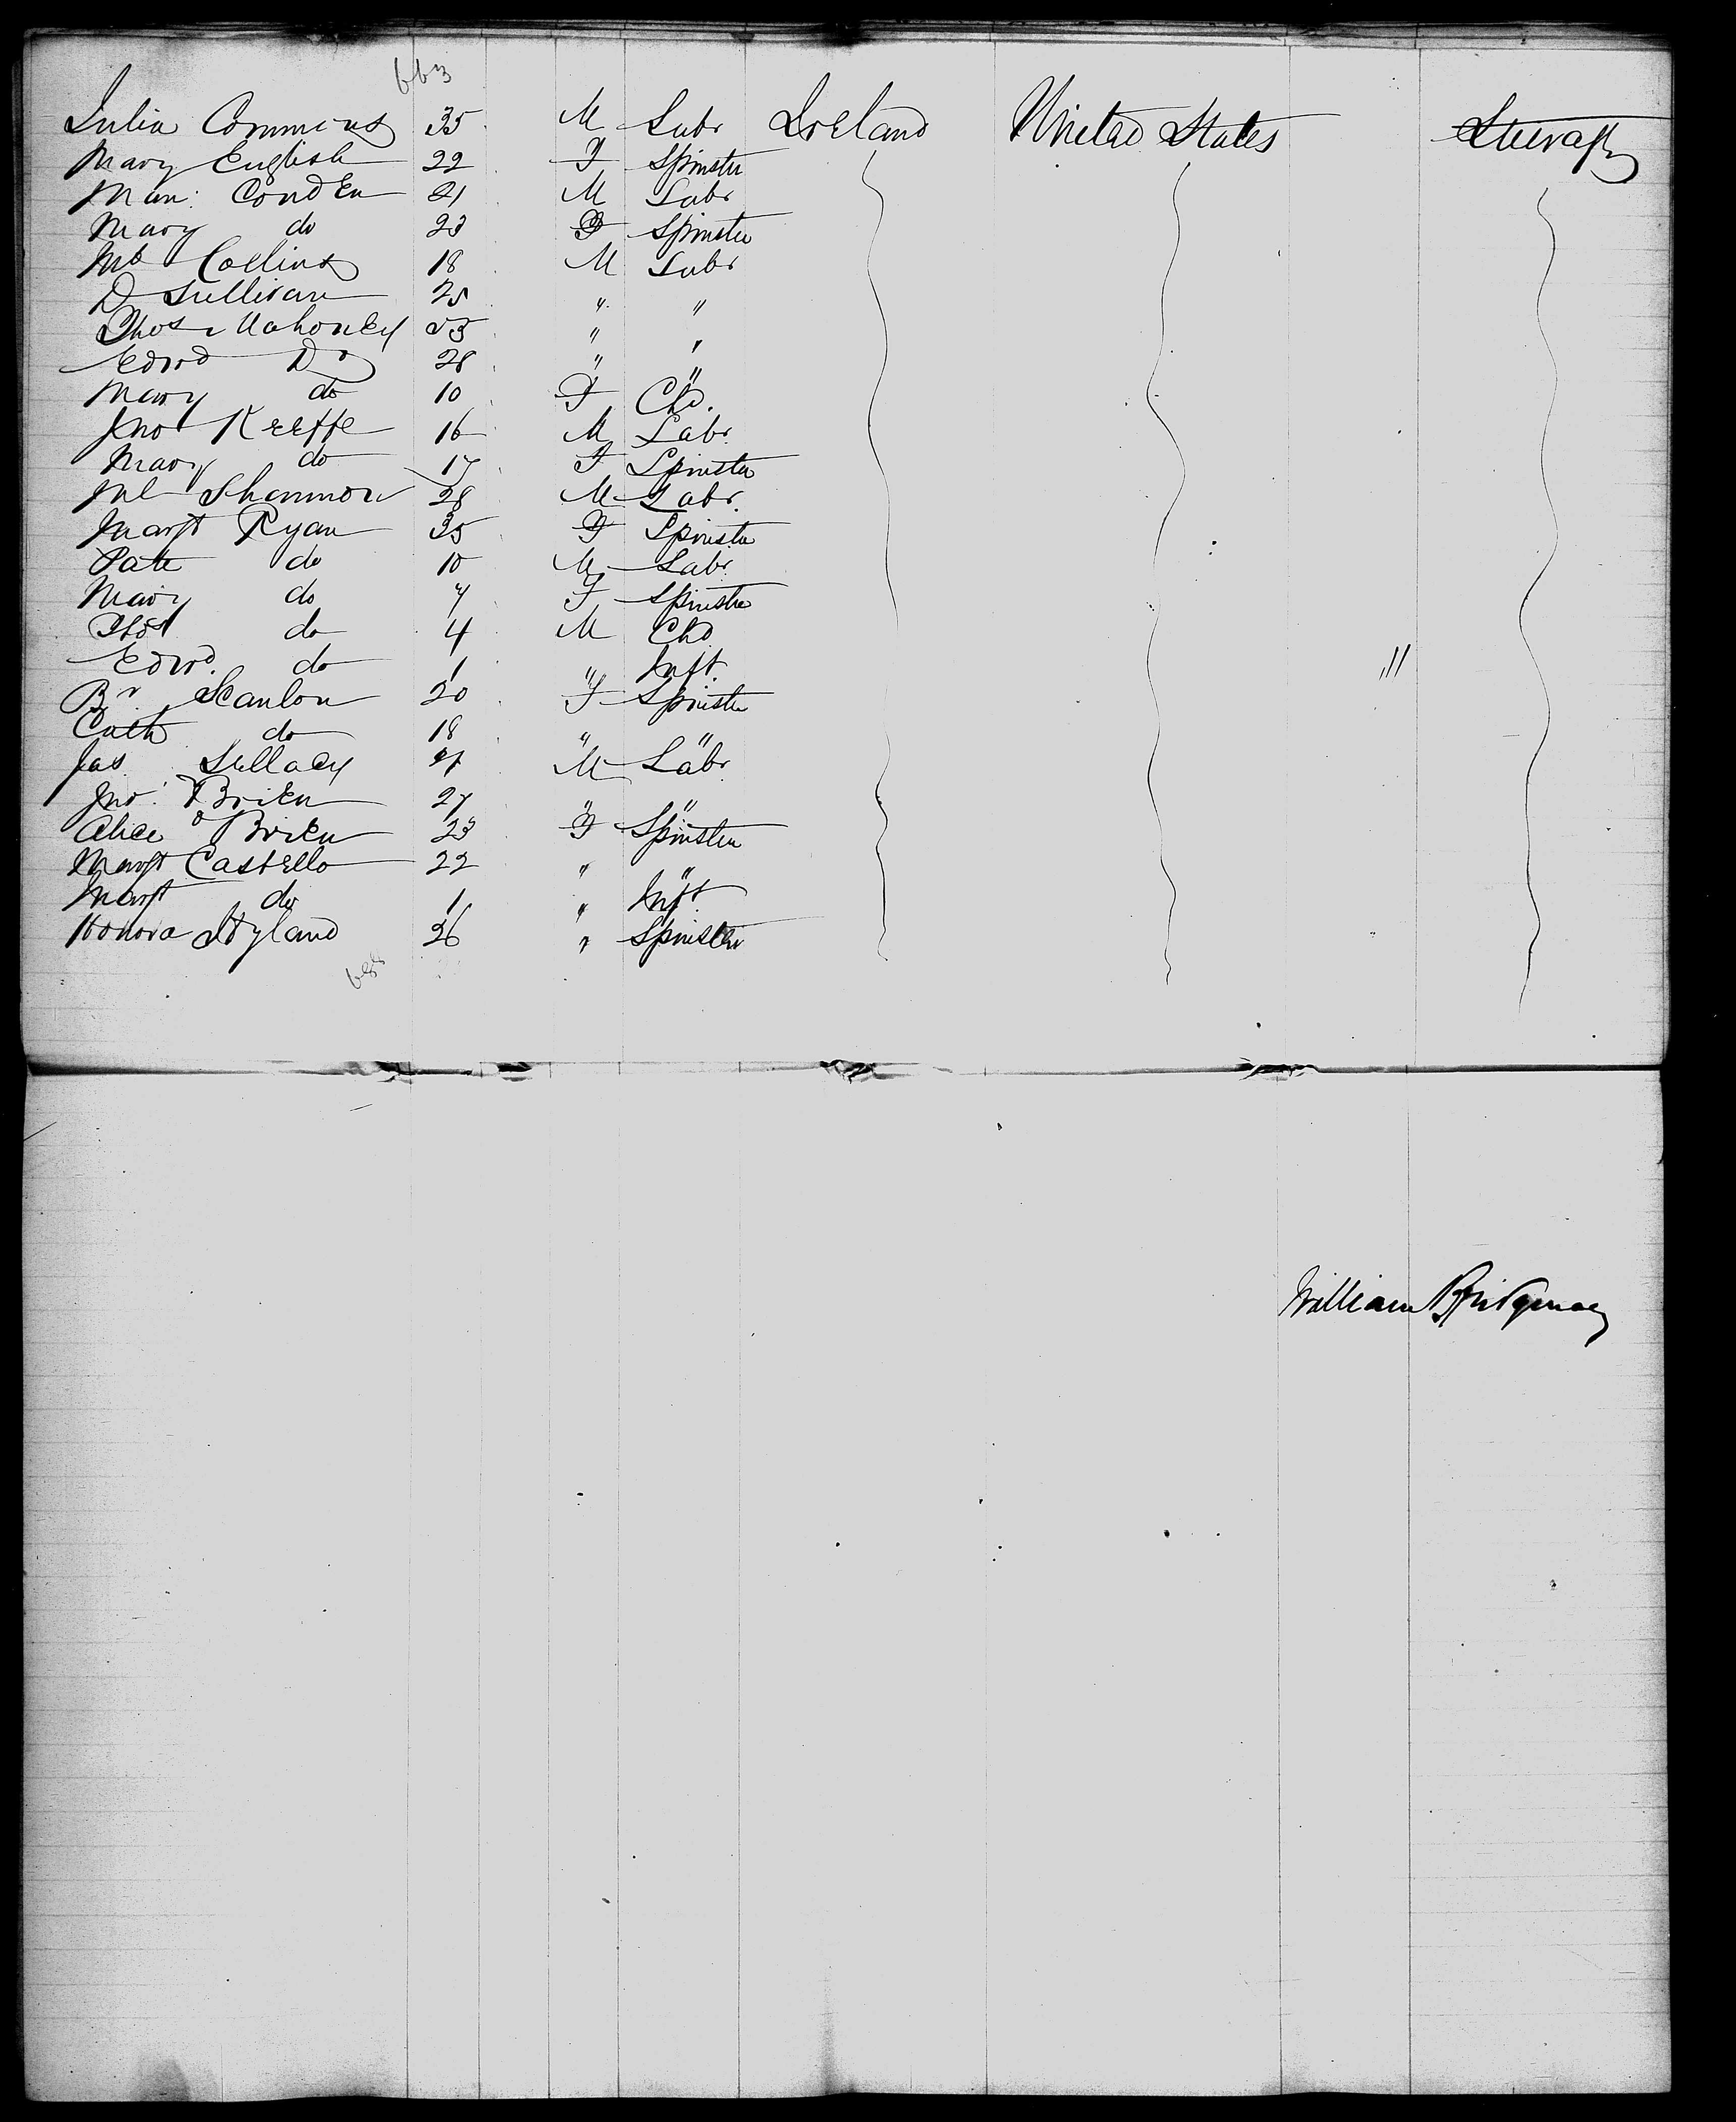 663
Julia Commins 35 M Labr Ireland United States Steerage
Mary English 22 F Spinster
Man: Conden 21 M Labr
Mary do 23 F Spinster
Ml Collins 18 M Labr
D Sullivan 25 " "
Thos Mahoney 53 " "
Edwd Do 28 " "
Mary do 10 F Chd.
Jno Keeffe 16 M Labr.
Mary do 17 F Spinster
Ml Shannon 28 M Labr.
Margt Ryan 35 F Spinster
Patk do 10 M Labr.
Mary do 7 F Spinster
Thos do 4 M Chd
Edwd. do 1 " Inft. //
Br. Scanlon 20 F Spinster
Cath do 18 " "
Jas Sullacy 21 M Labr
Jno. O'Brien 27 " "
Alice O'Brien 23 F Spinster
Margt Castello 22 " "
Margt do 1 " Inft
Honora Hyland 26 " Spinster
688
William Bridgway